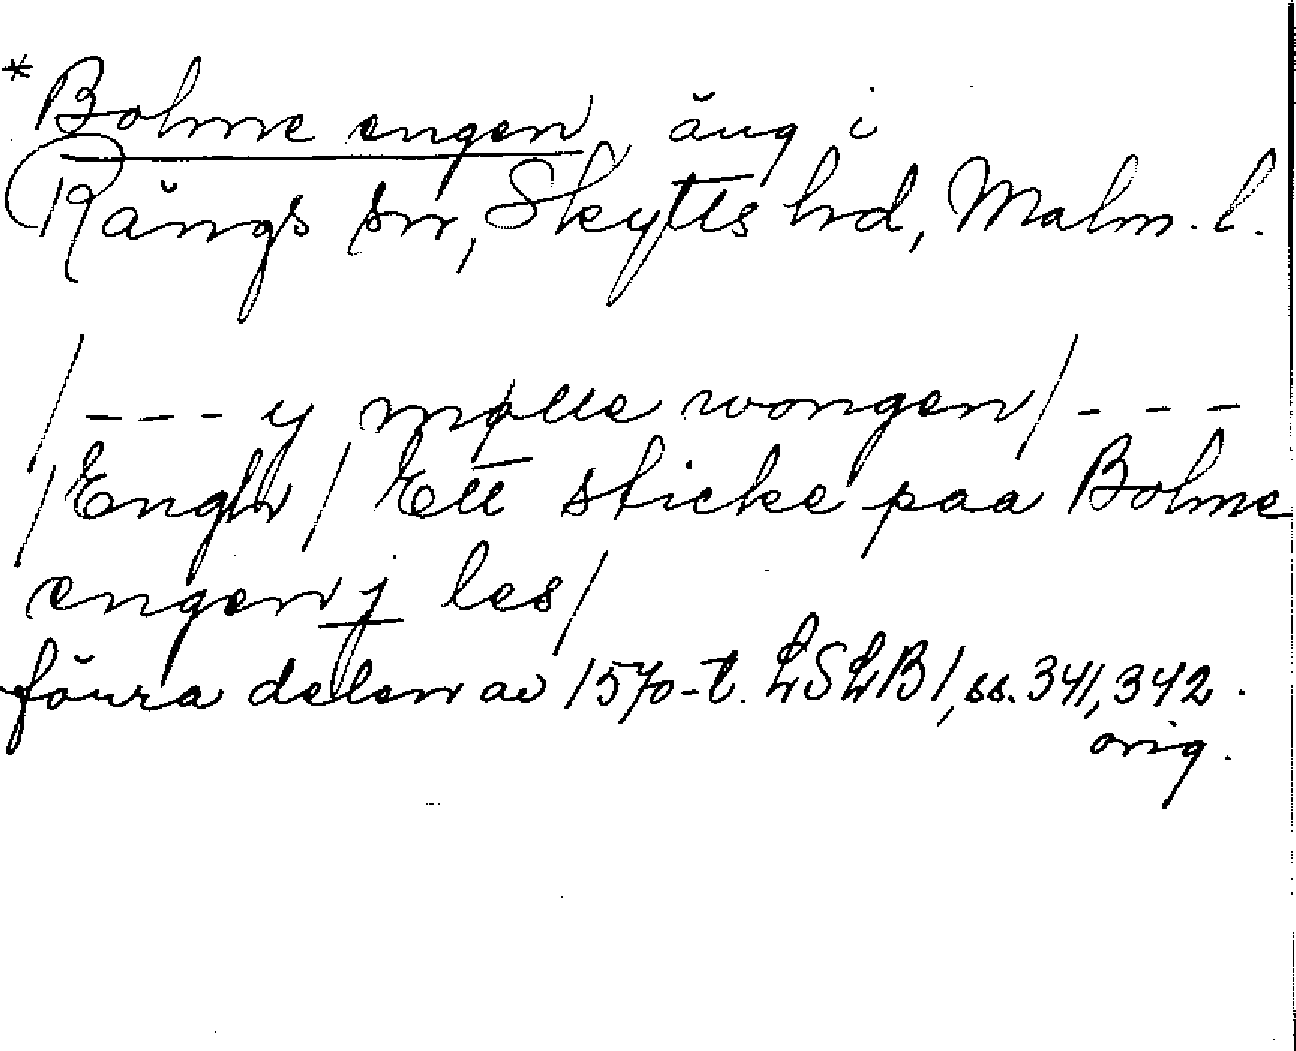 *Bolme engen, äng i
Rängs sn, Skytts hrd, Malm. l.
/--- y mølle wongen/ ---
/Enghr/ Ett sticke paa Bolme
engen j les/
förra delen av 1570-t. LSLB 1, ss. 341, 342.
orig.